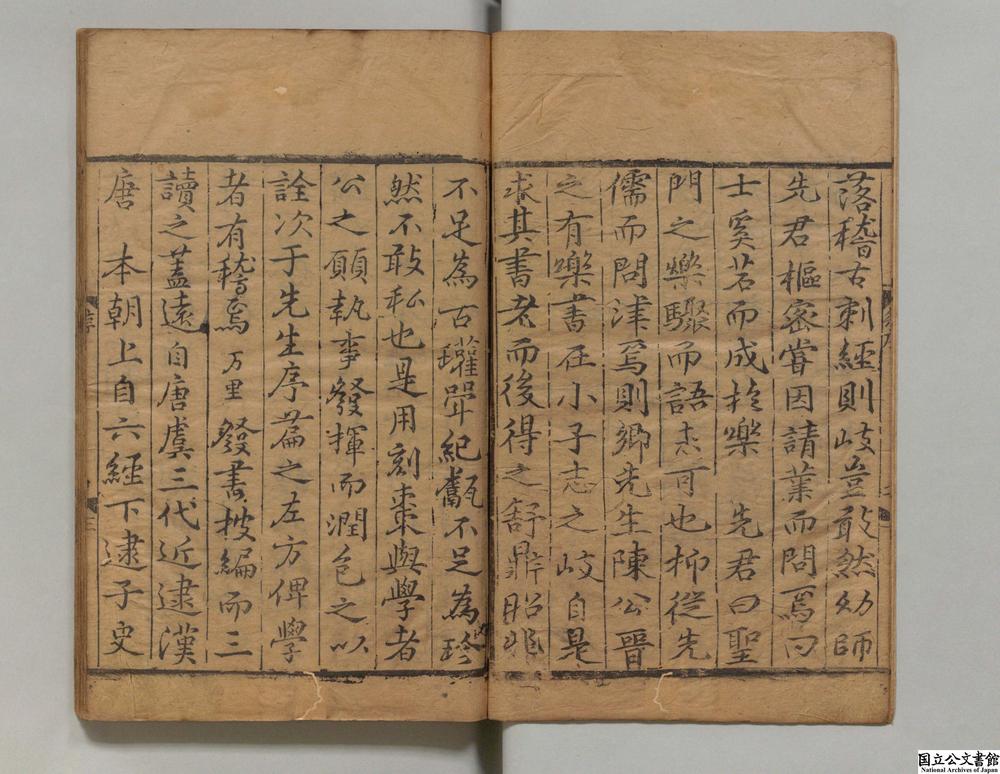 落稽古刺經則岐豈敢然幼師
先君樞密嘗因請業而問焉曰
士奚若而成於樂　先君曰聖
門之樂驟而語未可也抑從先
儒而問津焉則鄉先生陳公晉
之有樂書在小子志之　岐自是
求其書老而後得之舒鼎昭兆
不足為古瓘斝紀甗不足為珍
然不敢私也是用刻棗與學者
公之願執事發揮而潤色之以
詮次于先生序篇之左方俾學
者有稽焉　万里　發書披編而三
讀之蓋遠自唐虞三代近逮漢
唐　本朝上自六經下逮子史
序
三
国立公文書館
National Archives of Japan